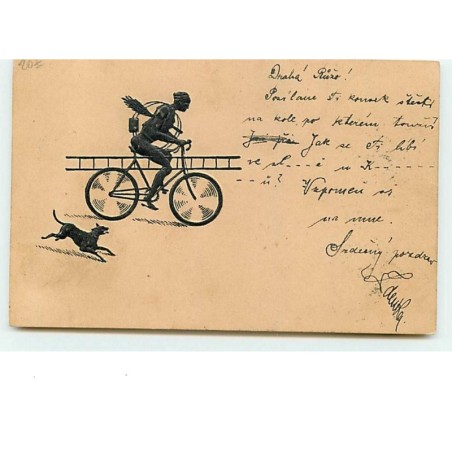 Drahá Růžo!
Posílam Ti kousek štěstí
na kole, po kterém toužíš
Jak se Ti líbí
ve sl - - - é u K - - - - - -
- - - - ů? Vzpomeň si
na mne.
Srdečný pozdrav